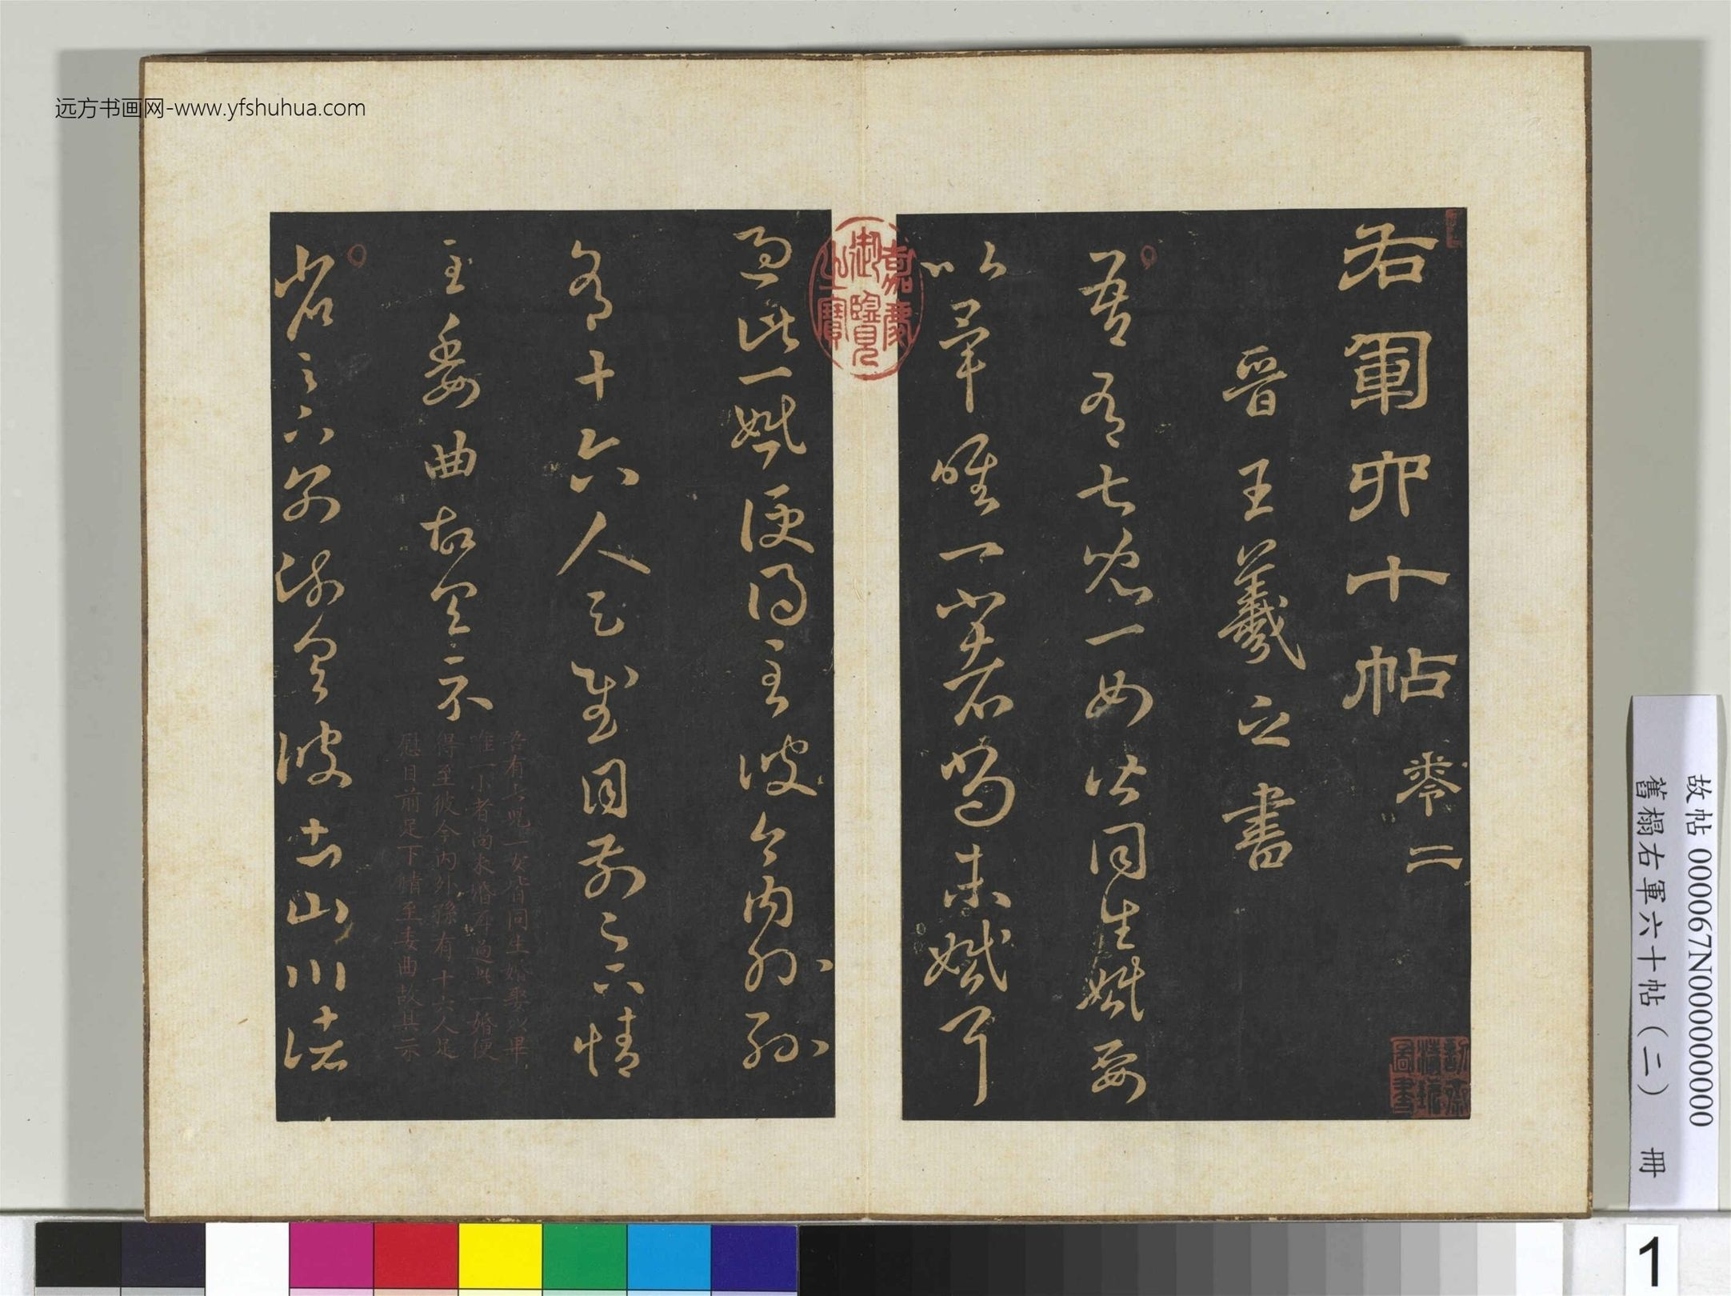 远方书画网-www.yfshuhua.com
右軍六十帖 卷二
晉王羲之書
吾有七兒一女皆同生婚娶
以畢唯一小者尚未婚耳
過此一婚便得至彼今內外孫
有十六人足慰目前足下情
至委曲故具示
吾有七兒一女皆同生婚娶以畢
唯一小者尚未婚耳過此一婚便
得至彼今內外孫有十六人足
慰目前足下情至委曲故具示
省足下別疏具彼土山川諸
嘉慶御覽之寶
故帖 000067N000000000
舊榻右軍六十帖（二） 冊
1